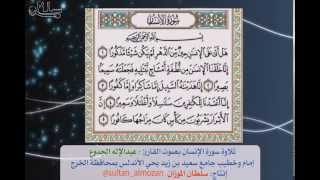 سُورَةُ الْإِنْسَانِ
بِسْمِ اللَّهِ الرَّحْمَٰنِ الرَّحِيمِ
هَلْ أَتَىٰ عَلَى الْإِنْسَانِ حِينٌ مِنَ الدَّهْرِ لَمْ يَكُنْ شَيْئًا مَذْكُورًا
إِنَّا خَلَقْنَا الْإِنْسَانَ مِنْ نُطْفَةٍ أَمْشَاجٍ نَبْتَلِيهِ فَجَعَلْنَاهُ سَمِيعًا
بَصِيرًا إِنَّا هَدَيْنَاهُ السَّبِيلَ إِمَّا شَاكِرًا وَإِمَّا كَفُورًا
إِنَّا أَعْتَدْنَا لِلْكَافِرِينَ سَلَاسِلَ وَأَغْلَالًا وَسَعِيرًا
إِنَّ الْأَبْرَارَ يَشْرَبُونَ مِنْ كَأْسٍ كَانَ مِزَاجُهَا كَافُورًا
تلاوة سورة الإنسان بصوت القارئ: عبدالإله الجدوع
إمام وخطيب جامع سعيد بن زيد بحي الأندلس بمحافظة الخرج
إنتاج: سلطان الموزان @sultan_almozan